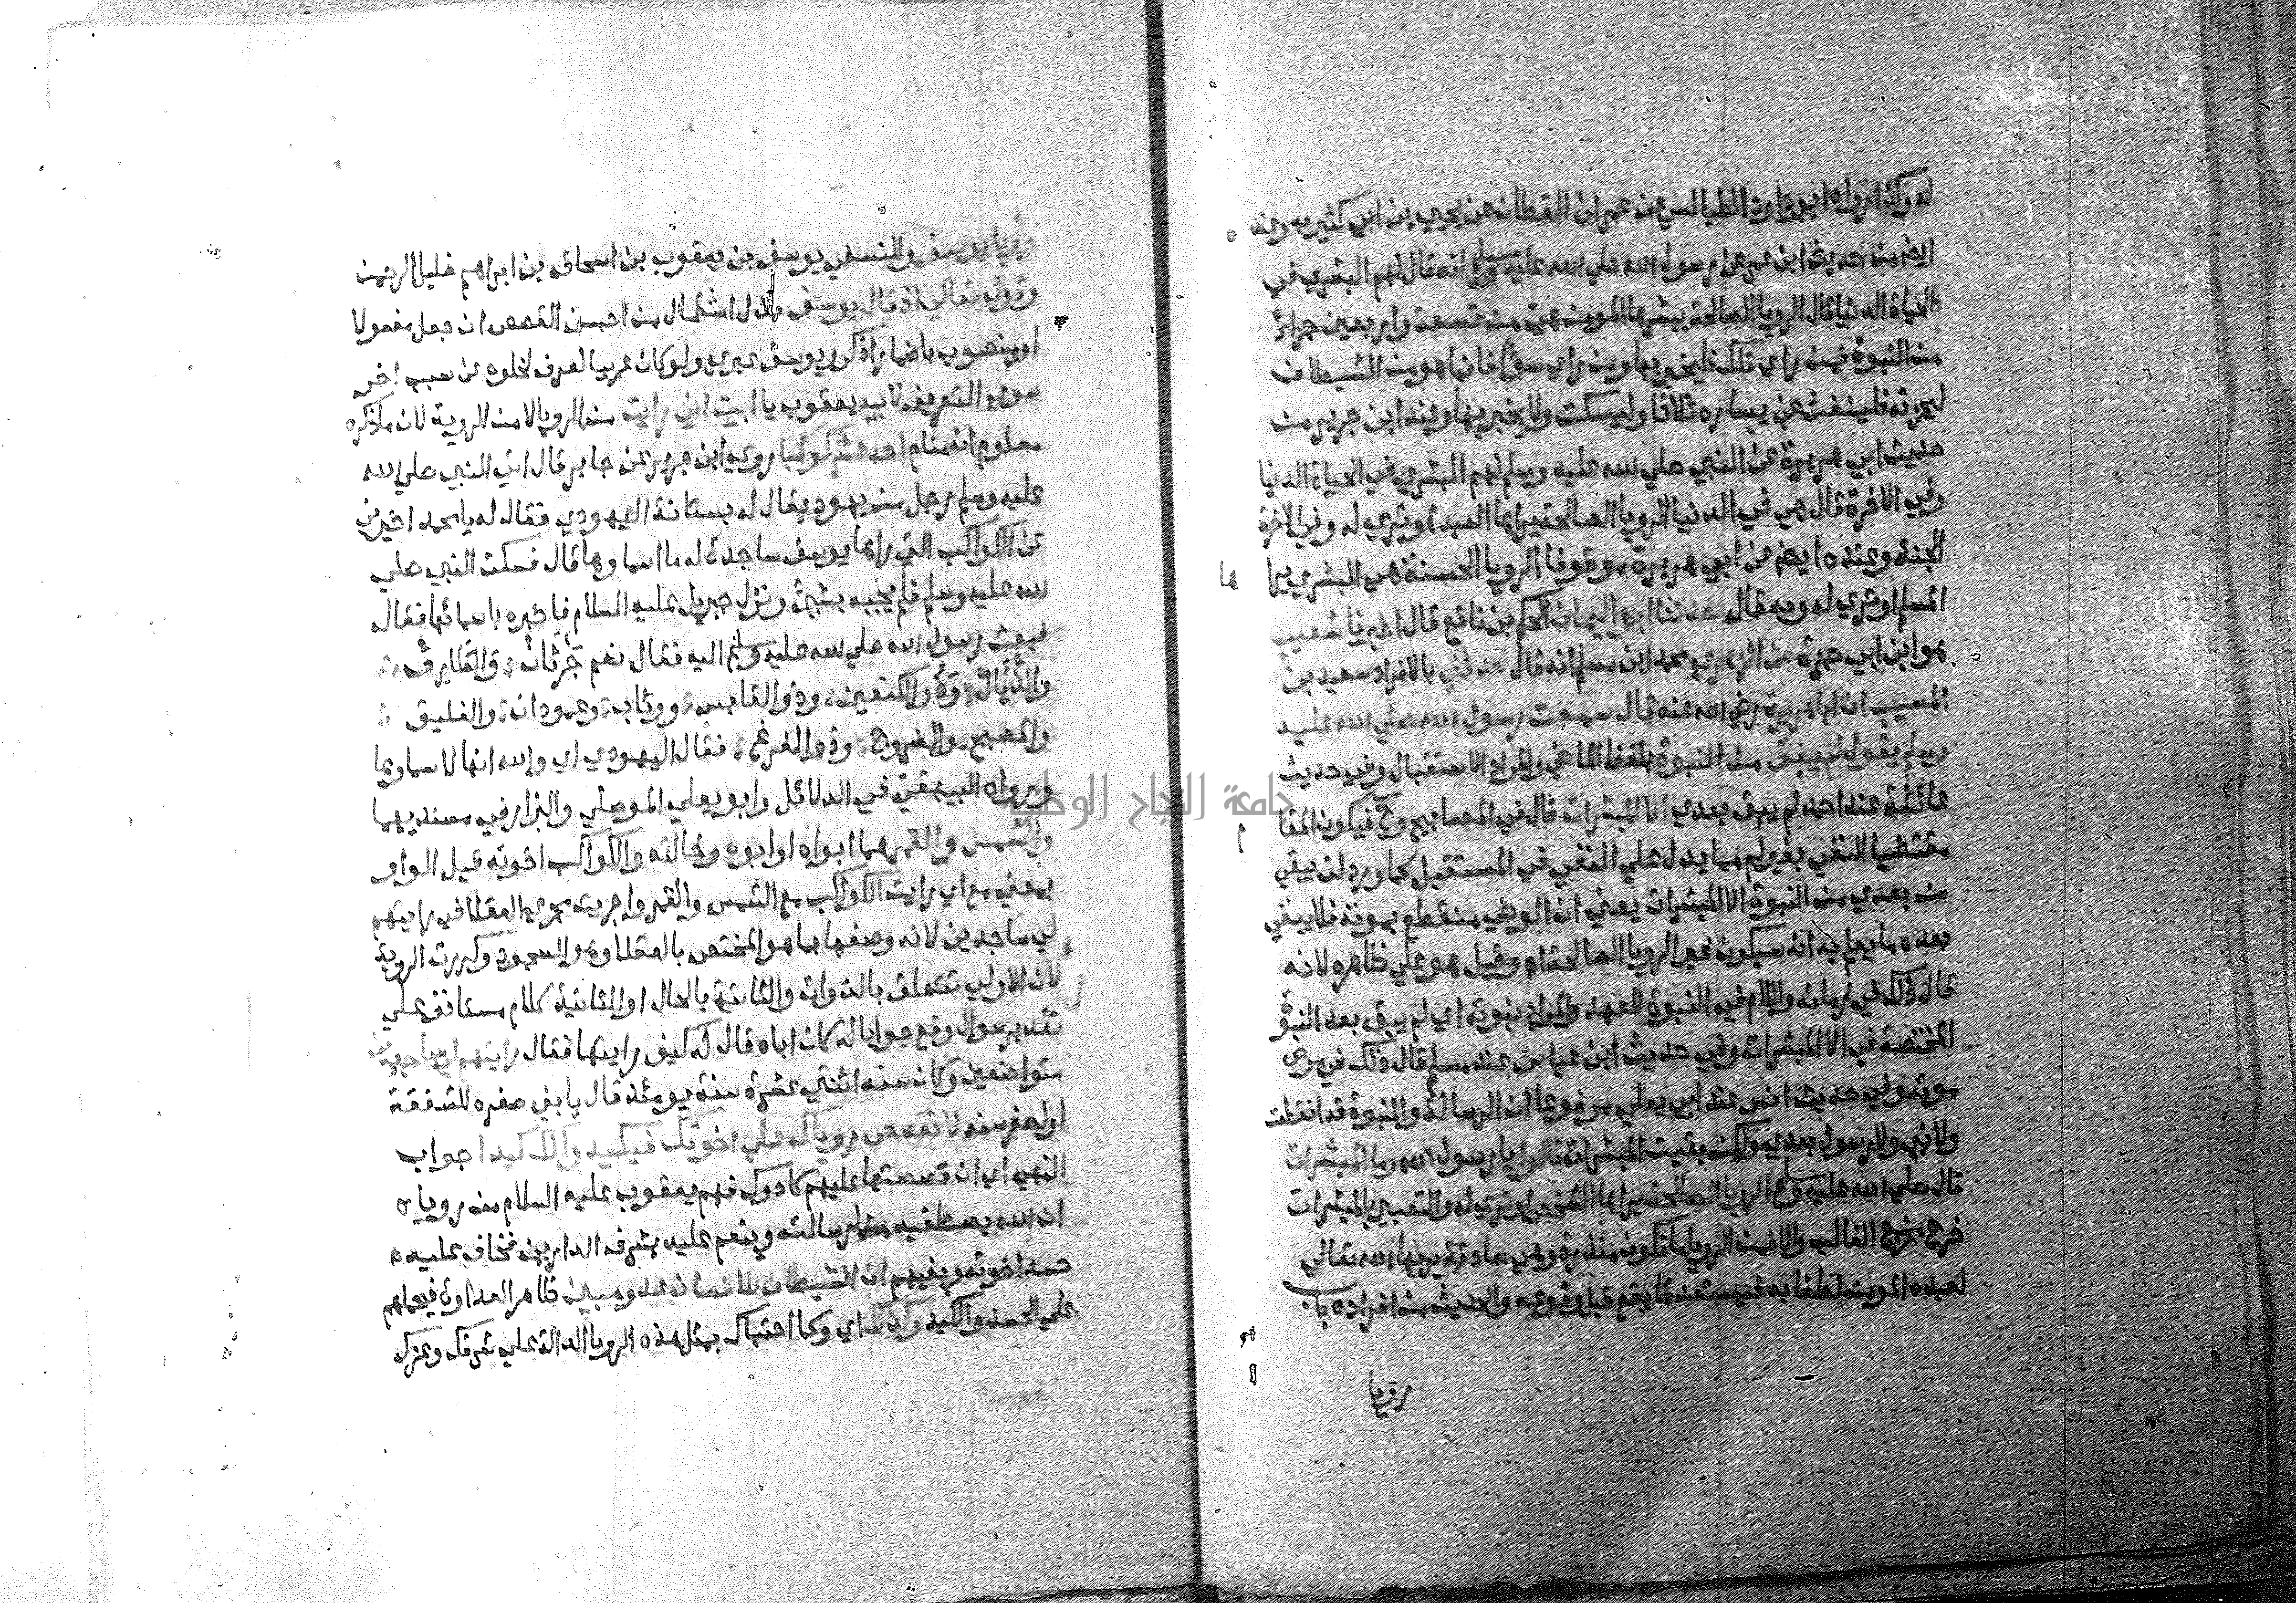 له وكذا رواه ابو داود الطيالسي عن عمران القطان عن يحيي بن ابي كثير به وعنده
ايضا من حديث ابن عمر عن رسول الله صلي الله عليه وسلم انه قال لهم البشري في
الحياة الدنيا قال الرويا الصالحة يبشرها المومن هي من تسعة واربعين جزاءً
من النبوة فمن راي تلك فليخبر بها ومن راي سوًا فانما هو من الشيطان
ليحزنه فلينفث عن يساره ثلاثا وليسكت ولا يخبر بها وعند ابن جرير من
حديث ابي هريرة عن النبي صلي الله عليه وسلم لهم البشري في الحياة الدنيا
وفي الاخرة قال هي في الدنيا الرويا الصالحة يراها العبد او تري له وفي الاخرة
الجنة وعنده ايضا عن ابي هريرة موقوفا الرويا الحسنة هي البشري يرا ها
المسلم او تري له وبه قال حدثنا ابو اليمان الحكم بن نافع قال اخبرنا شعيب
هو ابن ابي حمزة عن الزهري محمد ابن مسلم انه قال حدثني بالافراد سعيد بن
المسيب ان ابا هريرة رضي الله عنه قال سمعت رسول الله صلي الله عليه
وسلم يقول لم يبق من النبوة بلفظ الماضي والمراد الاستقبال وفي حديث
عائشة عند احمد لم يبق بعدي الا المبشرات قال في المصابيح وح فيكون المقا م
مقتضيا للنفي بغير لم مما يدل علي النفي في المستقبل كما ورد لن يبقي
من بعدي من النبوة الا المبشرات يعني ان الوحي منقطع بموته فلا يبقي
بعده ما يعلم به انه سيكون غير الرويا الصالحة اه وقيل هو علي ظاهره لانه
قال ذلك في زمانه واللام في النبوة للعهد والمراد نبوته اي لم يبق بعد النبوة
المختصة في الا المبشرات وفي حديث ابن عباس عند مسلم قال ذلك في مرض
موته وفي حديث انس عند ابي يعلي مرفوعا ان الرسالة والنبوة قد انقطعت
ولا نبي ولا رسول بعدي ولكن بقيت المبشرات قالوا يا رسول الله وما المبشرات
قال صلي الله عليه وسلم الرويا الصالحة يراها الشخص او تري له والتعبير بالمبشرات
خرج مخرج الغالب والا فمن الرويا ما تكون منذرة وهي صادقة يريها الله تعالي
لعبده المومن لطفا به فيستعد لما يقع قبل وقوعه والحديث من افراده باب
رويا
رويا يوسف وللنسفي يوسف بن يعقوب بن اسحاق بن ابراهيم خليل الرحمن
وقوله تعالي اذ قال يوسف بدل اشتمال من احسن القصص ان جعل مفعولا
او منصوب باضمار اذكر ويوسف عبري ولو كان عربيا لصرف لخلوه عن سبب اخر
سوي التعريف لابيه يعقوب يا ابت اني رايت من الرويا لا من الروية لان ما ذكره
معلوم انه منام احد عشر كوكبا روي ابن جرير عن جابر قال اتي النبي صلي الله
عليه وسلم رجل من يهود يقال له بستانة اليهودي فقال له يا محمد اخبرني
عن الكواكب التي راها يوسف ساجدة له ما اسماوها قال فسكت النبي صلي
الله عليه وسلم فلم يجبه بشيء ونزل جبريل عليه السلام فاخبره باسمائها فقال
فبعث رسول الله صلي الله عليه وسلم اليه فقال نعم جرثان والطارف
والذيال وذو الكتفين وذو القابس ووثاب وعمودان والفليق
والمصبح والضروج وذو الفرغ فقال اليهودي اي والله انها لاسماوها
ورواه البيهقي في الدلائل وابو يعلي الموصلي والبزار في مسنديهما
والشمس والقمر هما ابواه او ابوه وخالته والكواكب اخوته قيل الواو
بمعني مع اي رايت الكواكب مع الشمس والقمر واجريت مجري العقلا في رايتهم
لي ساجدين لانه وصفها بما هو المختص بالعقلا وهو السجود وكررت الروية
لان الاولي تتعلق بالذوات والثانية بالحال او الثانية كلام مستانف علي
تقدير سوال وقع جوابا له كان اباه قال له كيف رايتها فقال رايتهم لي ساجدين
متواضعين وكان سنه اثنتي عشرة سنة يومئذ قال يا بني صغره للشفقة
او لصغر سنه لا تقصص روياك علي اخوتك فيكيدوا لك كيدا جواب
النهي اي ان قصصتها عليهم كادوك فهم يعقوب عليه السلام من روياه
ان الله يصطفيه لرسالته وينعم عليه بشرف الدارين فخاف عليه
حسد اخوته وبغيهم ان الشيطان للانسان عدو مبين ظاهر العداوة فيحملهم
علي الحسد والكيد وكذلك اي وكما اجتباك بمثل هذه الرويا الدالة علي شرفك وعزك
جامعة النجاح الوطنية